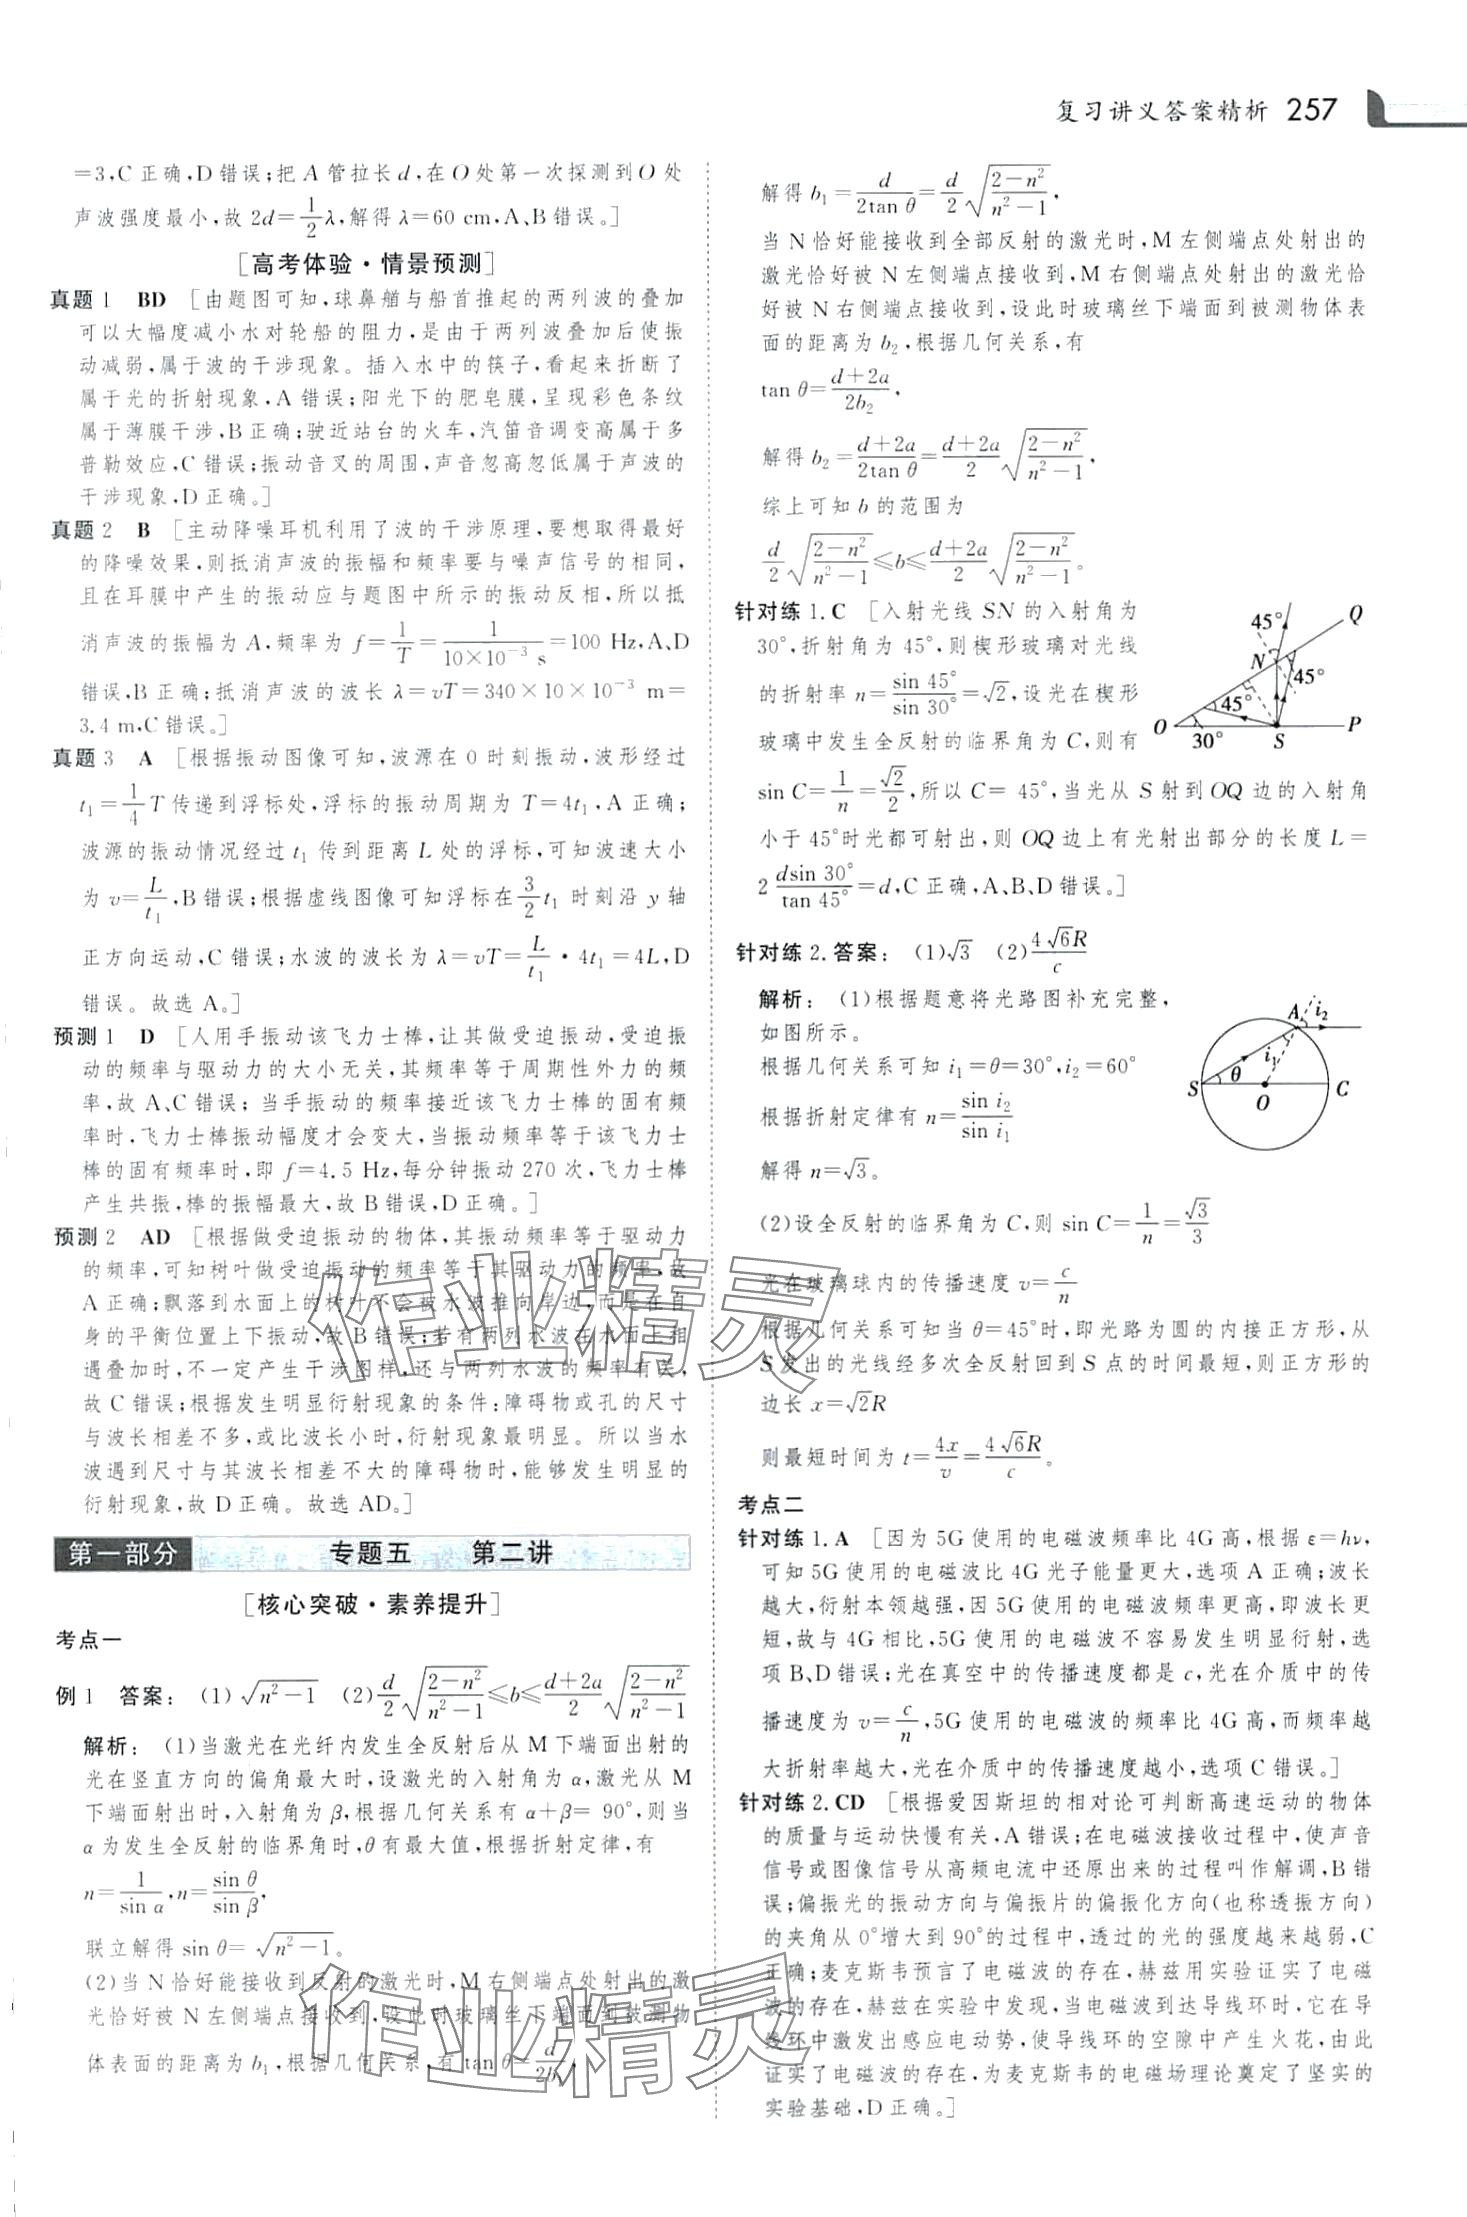 复习讲义答案精析 257
=3,C正确,D错误;把A管拉长d,在O处第一次探测到O处
声波强度最小,故2d=1/2 λ,解得λ=60 cm,A、B错误。]
[高考体验·情景预测]
真题1 BD [由题图可知,球鼻艏与船首推起的两列波的叠加
可以大幅度减小水对轮船的阻力,是由于两列波叠加后使振
动减弱,属于波的干涉现象。插入水中的筷子,看起来折断了
属于光的折射现象,A错误;阳光下的肥皂膜,呈现彩色条纹
属于薄膜干涉,B正确;驶近站台的火车,汽笛音调变高属于多
普勒效应,C错误;振动音叉的周围,声音忽高忽低属于声波的
干涉现象,D正确。]
真题2 B [主动降噪耳机利用了波的干涉原理,要想取得最好
的降噪效果,则抵消声波的振幅和频率要与噪声信号的相同,
且在耳膜中产生的振动应与题图中所示的振动反相,所以抵
消声波的振幅为A,频率为f=1/T=1/(10×10⁻³ s)=100 Hz,A、D
错误,B正确;抵消声波的波长λ=vT=340×10×10⁻³ m=
3.4 m,C错误。]
真题3 A [根据振动图像可知,波源在0时刻振动,波形经过
t₁=1/4 T传递到浮标处,浮标的振动周期为T=4t₁,A正确;
波源的振动情况经过t₁传到距离L处的浮标,可知波速大小
为v=L/t₁,B错误;根据虚线图像可知浮标在3/2 t₁时刻沿y轴
正方向运动,C错误;水波的波长为λ=vT=L/t₁·4t₁=4L,D
错误。故选A。]
预测1 D [人用手振动该飞力士棒,让其做受迫振动,受迫振
动的频率与驱动力的大小无关,其频率等于周期性外力的频
率,故A、C错误;当手振动的频率接近该飞力士棒的固有频
率时,飞力士棒振动幅度才会变大,当振动频率等于该飞力士
棒的固有频率时,即f=4.5 Hz,每分钟振动270次,飞力士棒
产生共振,棒的振幅最大,故B错误,D正确。]
预测2 AD [根据做受迫振动的物体,其振动频率等于驱动力
的频率,可知树叶做受迫振动的频率等于其驱动力的频率,故
A正确;飘落到水面上的树叶不会被水波推向岸边,而是在自
身的平衡位置上下振动,故B错误;若有两列水波在水面上相
遇叠加时,不一定产生干涉图样,还与两列水波的频率有关,
故C错误;根据发生明显衍射现象的条件:障碍物或孔的尺寸
与波长相差不多,或比波长小时,衍射现象最明显。所以当水
波遇到尺寸与其波长相差不大的障碍物时,能够发生明显的
衍射现象,故D正确。故选AD。]
第一部分 专题五 第二讲
[核心突破·素养提升]
考点一
例1 答案:(1)√(n²-1) (2)d/2 √((2-n²)/(n²-1))≤b≤(d+2a)/2 √((2-n²)/(n²-1))
解析:(1)当激光在光纤内发生全反射后从M下端面出射的
光在竖直方向的偏角最大时,设激光的入射角为α,激光从M
下端面射出时,入射角为β,根据几何关系有α+β=90°,则当
α为发生全反射的临界角时,θ有最大值,根据折射定律,有
n=1/sin α,n=sin θ/sin β,
联立解得sin θ=√(n²-1)。
(2)当N恰好能接收到反射的激光时,M右侧端点处射出的激
光恰好被N左侧端点接收到,设此时玻璃丝下端面到被测物
体表面的距离为b₁,根据几何关系,有tan θ=d/2b₁,
解得b₁=d/(2tan θ)=d/2 √((2-n²)/(n²-1)),
当N恰好能接收到全部反射的激光时,M左侧端点处射出的
激光恰好被N左侧端点接收到,M右侧端点处射出的激光恰
好被N右侧端点接收到,设此时玻璃丝下端面到被测物体表
面的距离为b₂,根据几何关系,有
tan θ=(d+2a)/2b₂,
解得b₂=(d+2a)/(2tan θ)=(d+2a)/2 √((2-n²)/(n²-1)),
综上可知b的范围为
d/2 √((2-n²)/(n²-1))≤b≤(d+2a)/2 √((2-n²)/(n²-1))。
针对练1.C [入射光线SN的入射角为
30°,折射角为45°,则楔形玻璃对光线
的折射率n=sin 45°/sin 30°=√2,设光在楔形
玻璃中发生全反射的临界角为C,则有
sin C=1/n=√2/2,所以C=45°,当光从S射到OQ边的入射角
小于45°时光都可射出,则OQ边上有光射出部分的长度L=
2 dsin 30°/tan 45°=d,C正确,A、B、D错误。]
45° Q
N
45°
45°
O 30° S P
针对练2.答案:(1)√3 (2)4√6R/c
解析:(1)根据题意将光路图补充完整,
如图所示。
根据几何关系可知i₁=θ=30°,i₂=60°
根据折射定律有n=sin i₂/sin i₁
解得n=√3。
A i₂
i₁
S θ O C
(2)设全反射的临界角为C,则sin C=1/n=√3/3
光在玻璃球内的传播速度v=c/n
根据几何关系可知当θ=45°时,即光路为圆的内接正方形,从
S发出的光线经多次全反射回到S点的时间最短,则正方形的
边长x=√2R
则最短时间为t=4x/v=4√6R/c。
考点二
针对练1.A [因为5G使用的电磁波频率比4G高,根据ε=hν,
可知5G使用的电磁波比4G光子能量更大,选项A正确;波长
越大,衍射本领越强,因5G使用的电磁波频率更高,即波长更
短,故与4G相比,5G使用的电磁波不容易发生明显衍射,选
项B、D错误;光在真空中的传播速度都是c,光在介质中的传
播速度为v=c/n,5G使用的电磁波的频率比4G高,而频率越
大折射率越大,光在介质中的传播速度越小,选项C错误。]
针对练2.CD [根据爱因斯坦的相对论可判断高速运动的物体
的质量与运动快慢有关,A错误;在电磁波接收过程中,使声音
信号或图像信号从高频电流中还原出来的过程叫作解调,B错
误;偏振光的振动方向与偏振片的偏振化方向(也称透振方向)
的夹角从0°增大到90°的过程中,透过的光的强度越来越弱,C
正确;麦克斯韦预言了电磁波的存在,赫兹用实验证实了电磁
波的存在,赫兹在实验中发现,当电磁波到达导线环时,它在导
线环中激发出感应电动势,使导线环的空隙中产生火花,由此
证实了电磁波的存在,为麦克斯韦的电磁场理论奠定了坚实的
实验基础,D正确。]
作业精灵
作业精灵